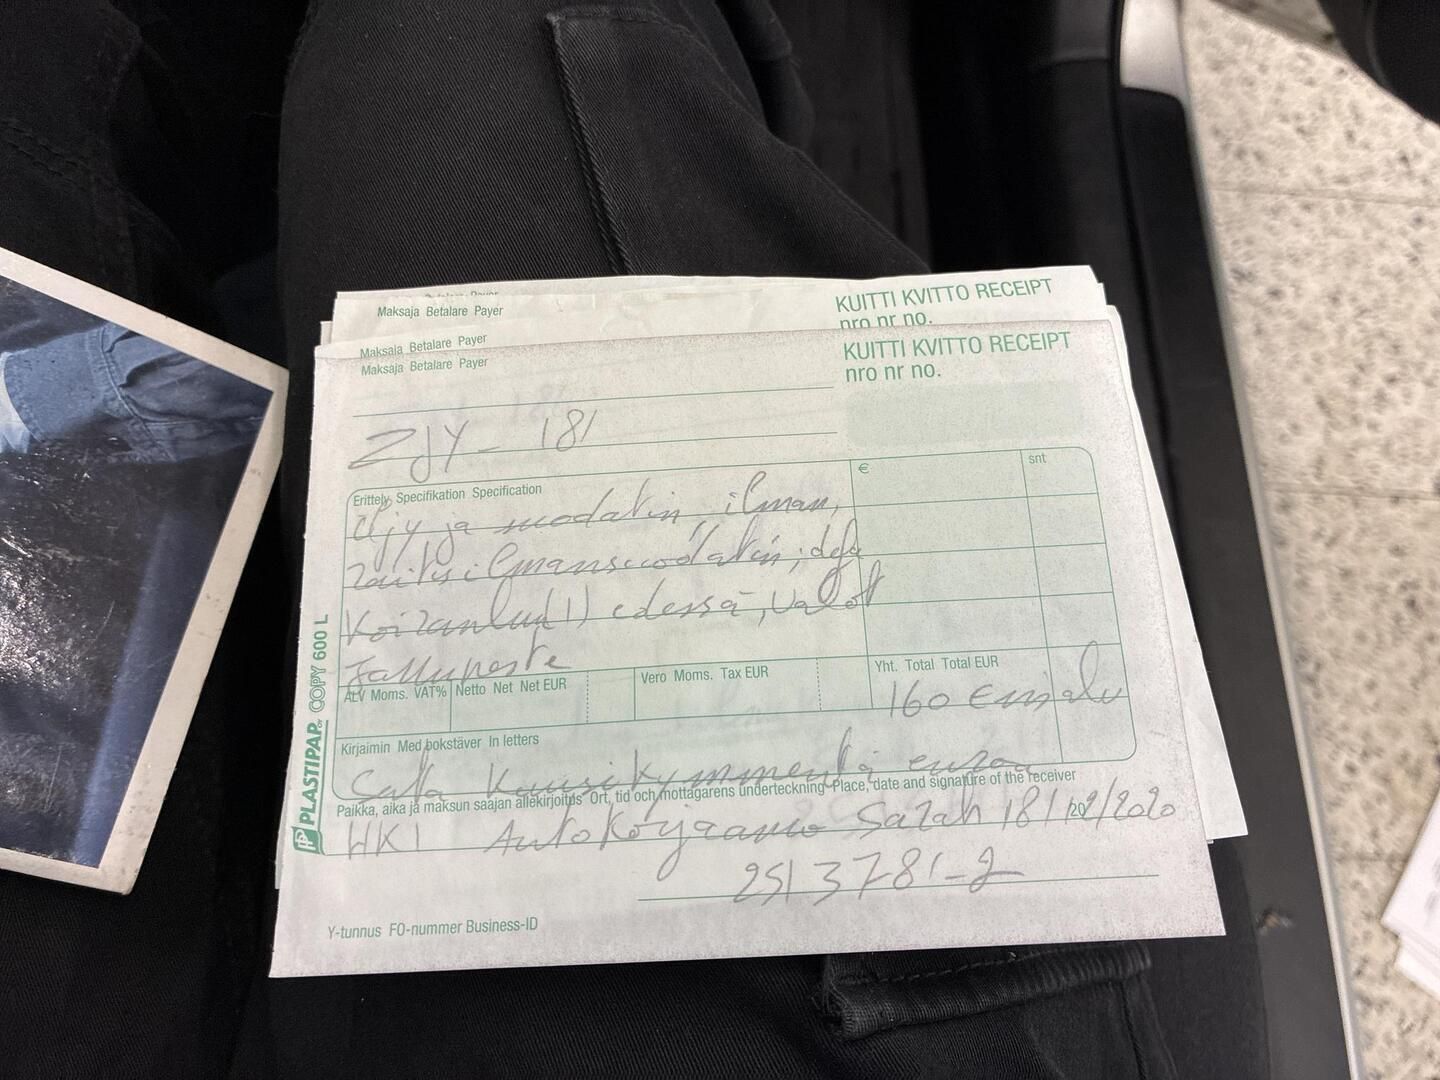 Maksaja Betalare Payer
KUITTI KVITTO RECEIPT
nro nr no.
Maksaja Betalare Payer
Maksaja Betalare Payer
KUITTI KVITTO RECEIPT
nro nr no.
ZJY - 181
Erittely Specifikation Specification
€
snt
Öljy ja suodatin ilman,
raitisilmansuodatin,
edessä, valot
ALV Moms. VAT%
Netto Net Net EUR
Vero Moms. Tax EUR
Yht. Total Total EUR
160 €
Kirjaimin Med bokstäver In letters
Sata Kuusikymmentä euroa
Paikka, aika ja maksun saajan allekirjoitus Ort, tid och mottagarens underteckning Place, date and signature of the receiver
HKI Autokorjaamo Sarah 18/02/2020
2513781-2
Y-tunnus FO-nummer Business-ID
PLASTIPAP COPY 600 L